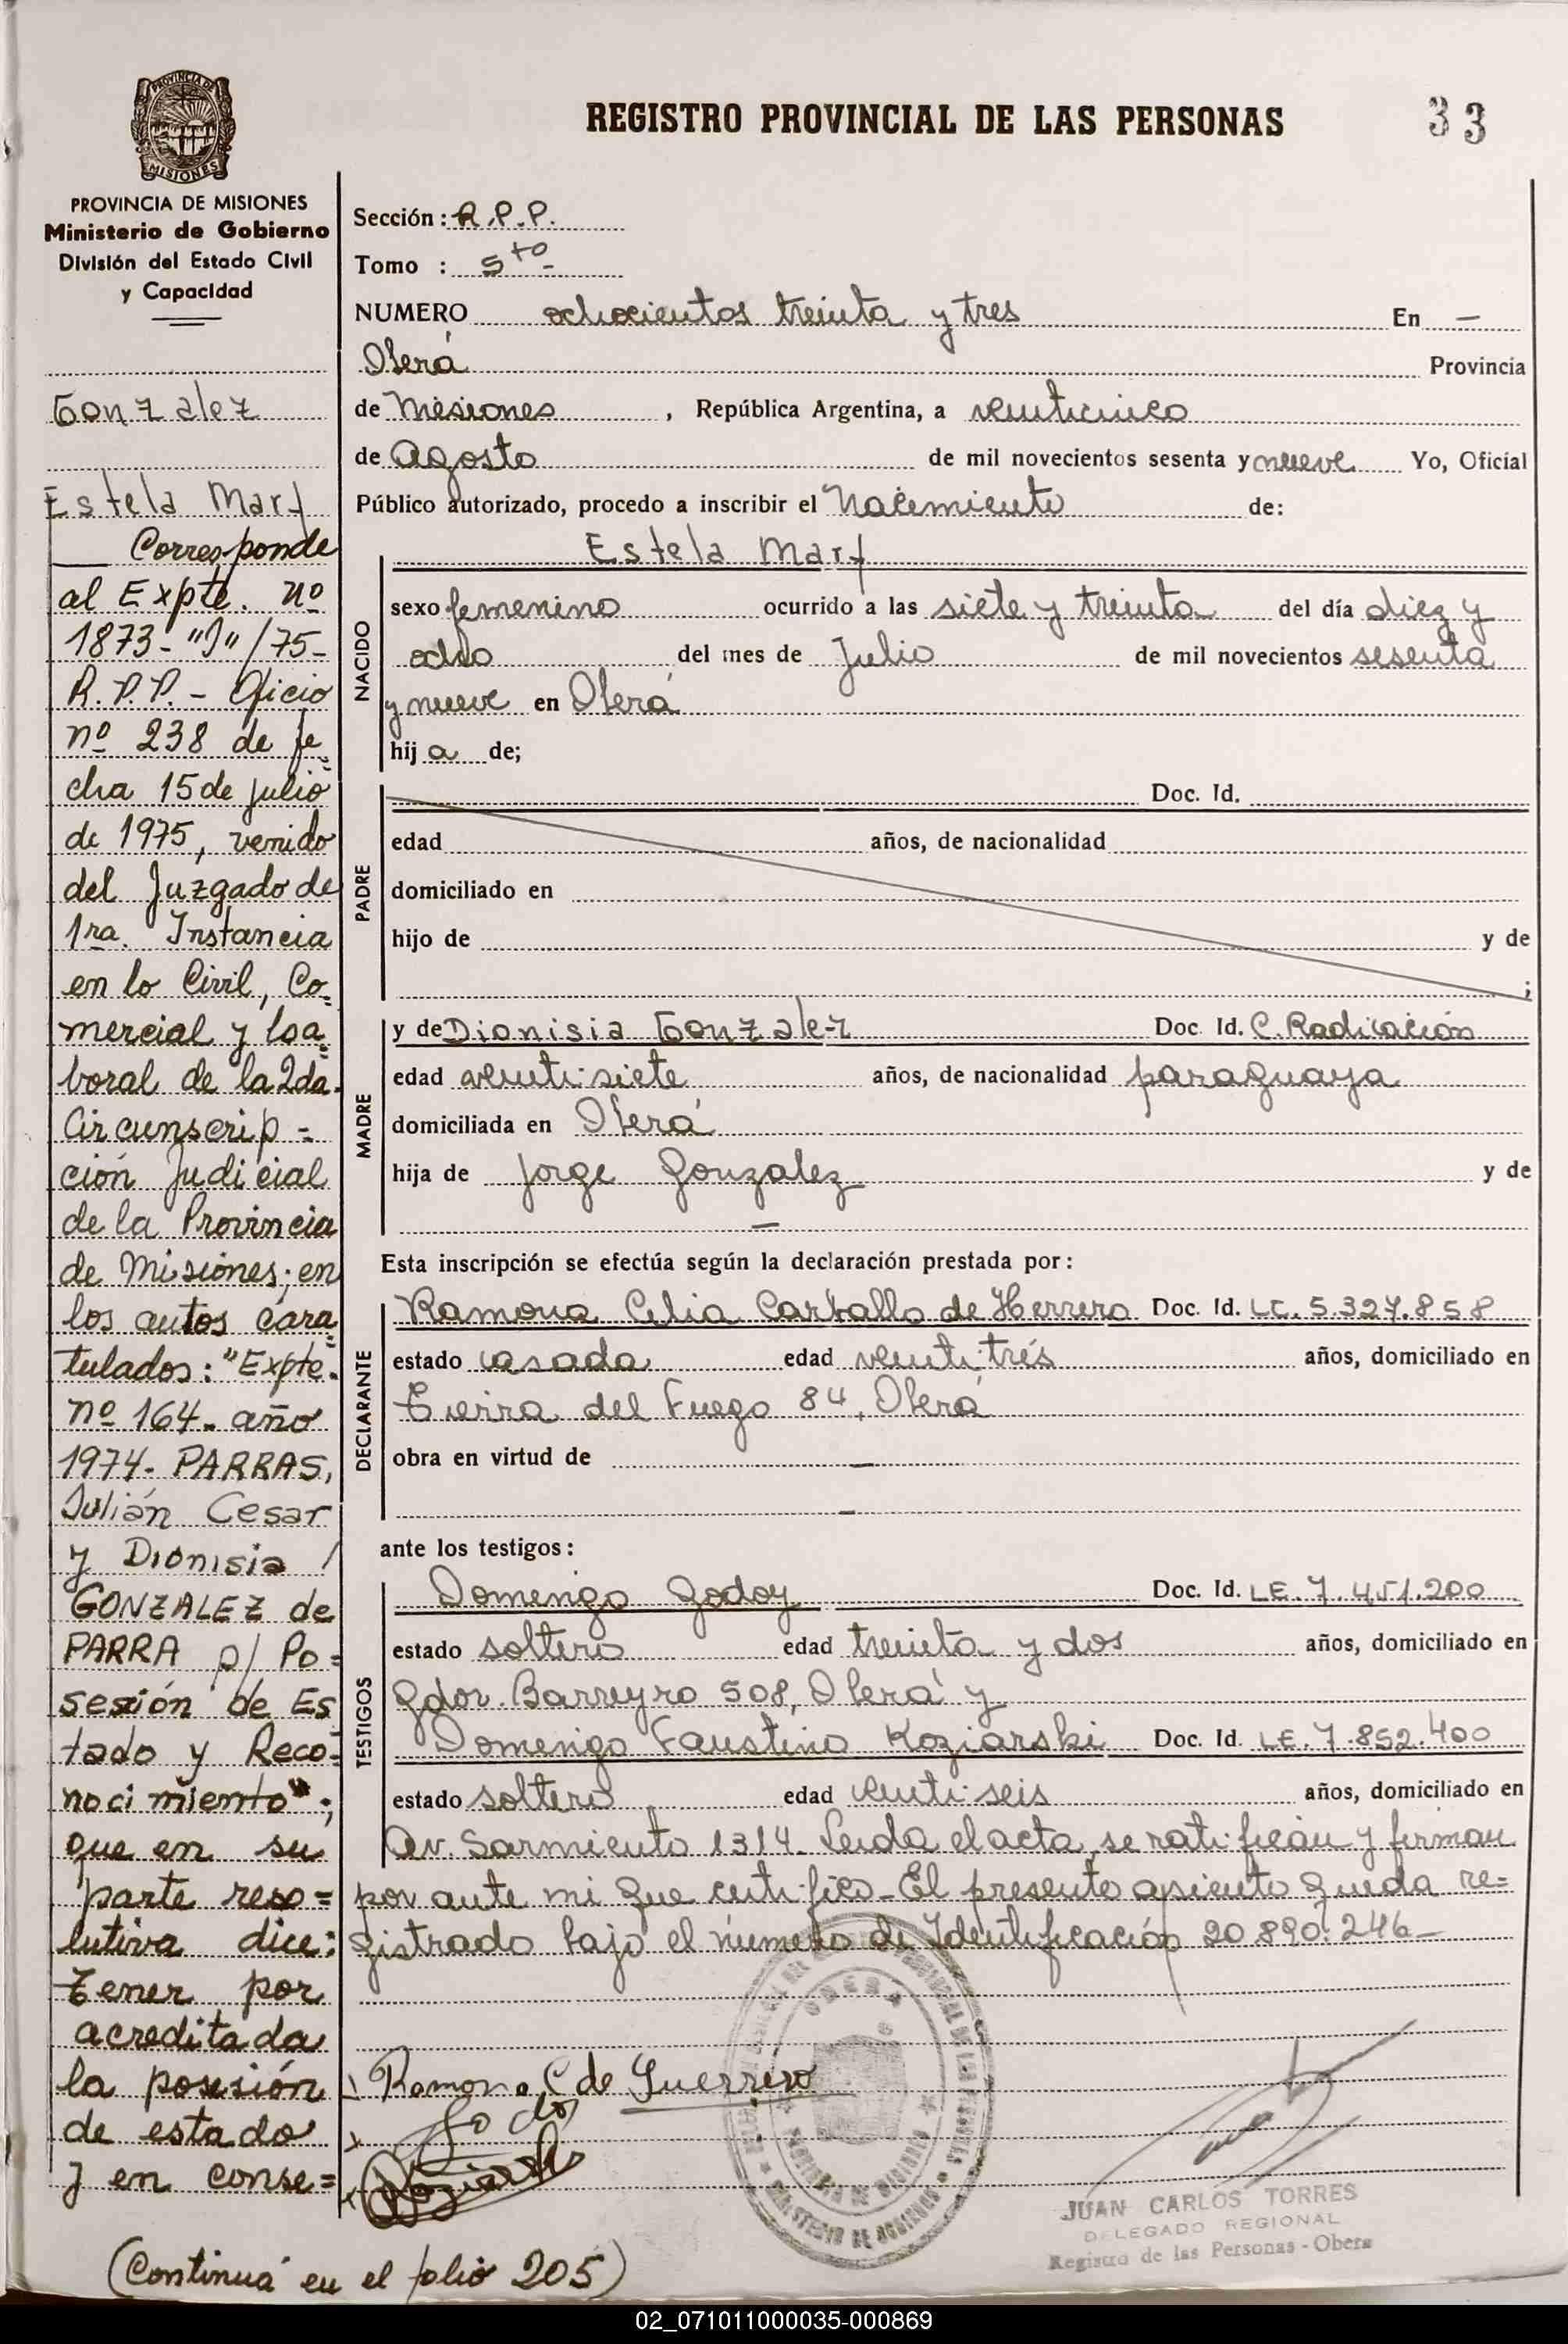 REGISTRO PROVINCIAL DE LAS PERSONAS
33
PROVINCIA DE MISIONES
PROVINCIA DE MISIONES
Ministerio de Gobierno
División del Estado Civil
y Capacidad
Gonzalez
Estela Mary
Corresponde
al Expte. nº
1873-"J"/75-
R.P.P. - Oficio
nº 238 de fe=
cha 15 de julio
de 1975, venido
del Juzgado de
1ra. Instancia
en lo Civil, Co=
mercial y Loa=
boral de la 2da.
Circunscrip=
ción Judicial
de la Provincia
de Misiones; en
los autos cara=
tulados: "Expte.
nº 164- año
1974- PARRAS,
Julián Cesar
y Dionisia /
GONZALEZ de
PARRA p/ Po=
sesión de Es
tado y Reco=
nocimiento";
que en su
parte reso=
lutiva dice:
Tener por
acreditada
la posesión
de estado
y en conse=
Sección: R.P.P.
Tomo : 5to
NUMERO ochocientos treinta y tres En —
Oberá Provincia
de Misiones , República Argentina, a veinticinco
de Agosto de mil novecientos sesenta y nueve Yo, Oficial
Público autorizado, procedo a inscribir el Nacimiento de:
NACIDO
Estela Mary
sexo femenino ocurrido a las siete y treinta del día diez y
ocho del mes de Julio de mil novecientos sesenta
y nueve en Oberá
hij a de;
PADRE
Doc. Id.
edad años, de nacionalidad
domiciliado en
hijo de y de
;
MADRE
y de Dionisia Gonzalez Doc. Id. C. Radicación
edad veintisiete años, de nacionalidad paraguaya
domiciliada en Oberá
hija de Jorge Gonzalez y de
—
Esta inscripción se efectúa según la declaración prestada por:
DECLARANTE
Ramona Celia Carballo de Herrero Doc. Id. LC. 5.327.858
estado casada edad veintitrés años, domiciliado en
Tierra del Fuego 84, Oberá
obra en virtud de —
—
ante los testigos:
TESTIGOS
Domingo Godoy Doc. Id. LE. 7.451.200
estado soltero edad treinta y dos años, domiciliado en
Gdor. Barreyro 508, Oberá y
Domingo Faustino Koziarski Doc. Id. LE. 7.852.400
estado soltero edad veintiseis años, domiciliado en
Av. Sarmiento 1314. Leida el acta, se ratifican y firman
por ante mi que certifico - El presente asiento queda re=
gistrado bajo el número de Identificación 20.890.246-
Ramona C de Guerrero
Godoy
JUAN CARLOS TORRES
DELEGADO REGIONAL
Registro de las Personas - Obera
(Continuá en el folio 205)
02_071011000035-000869